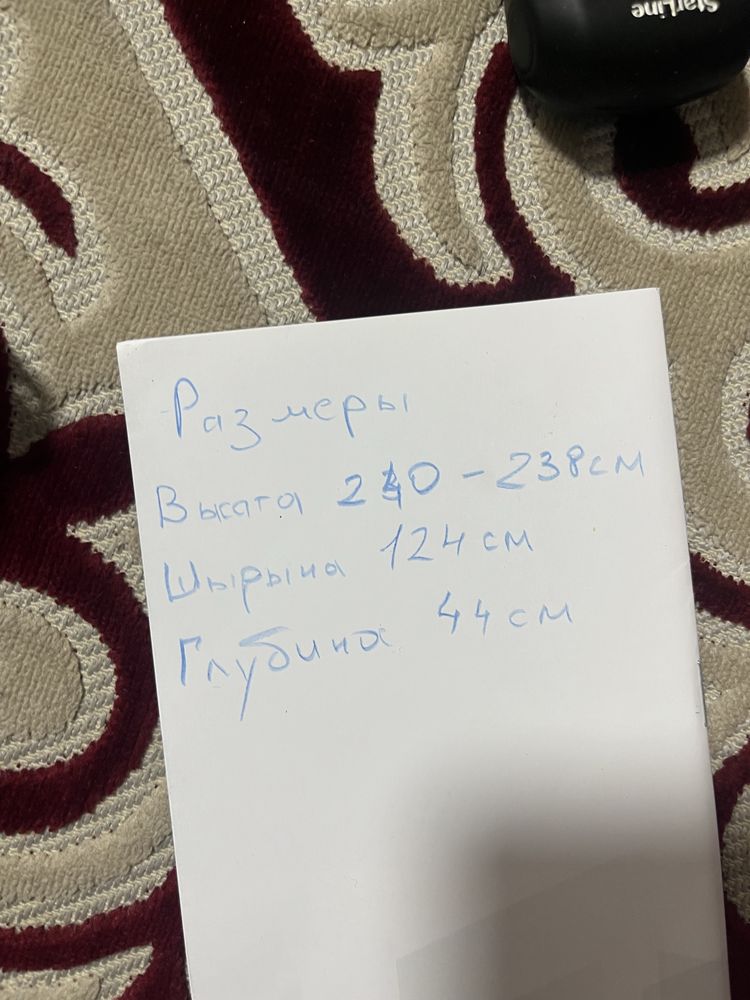 StarLine
Размеры
Высата 240 - 238см
Шырына 124см
Глубина 44см